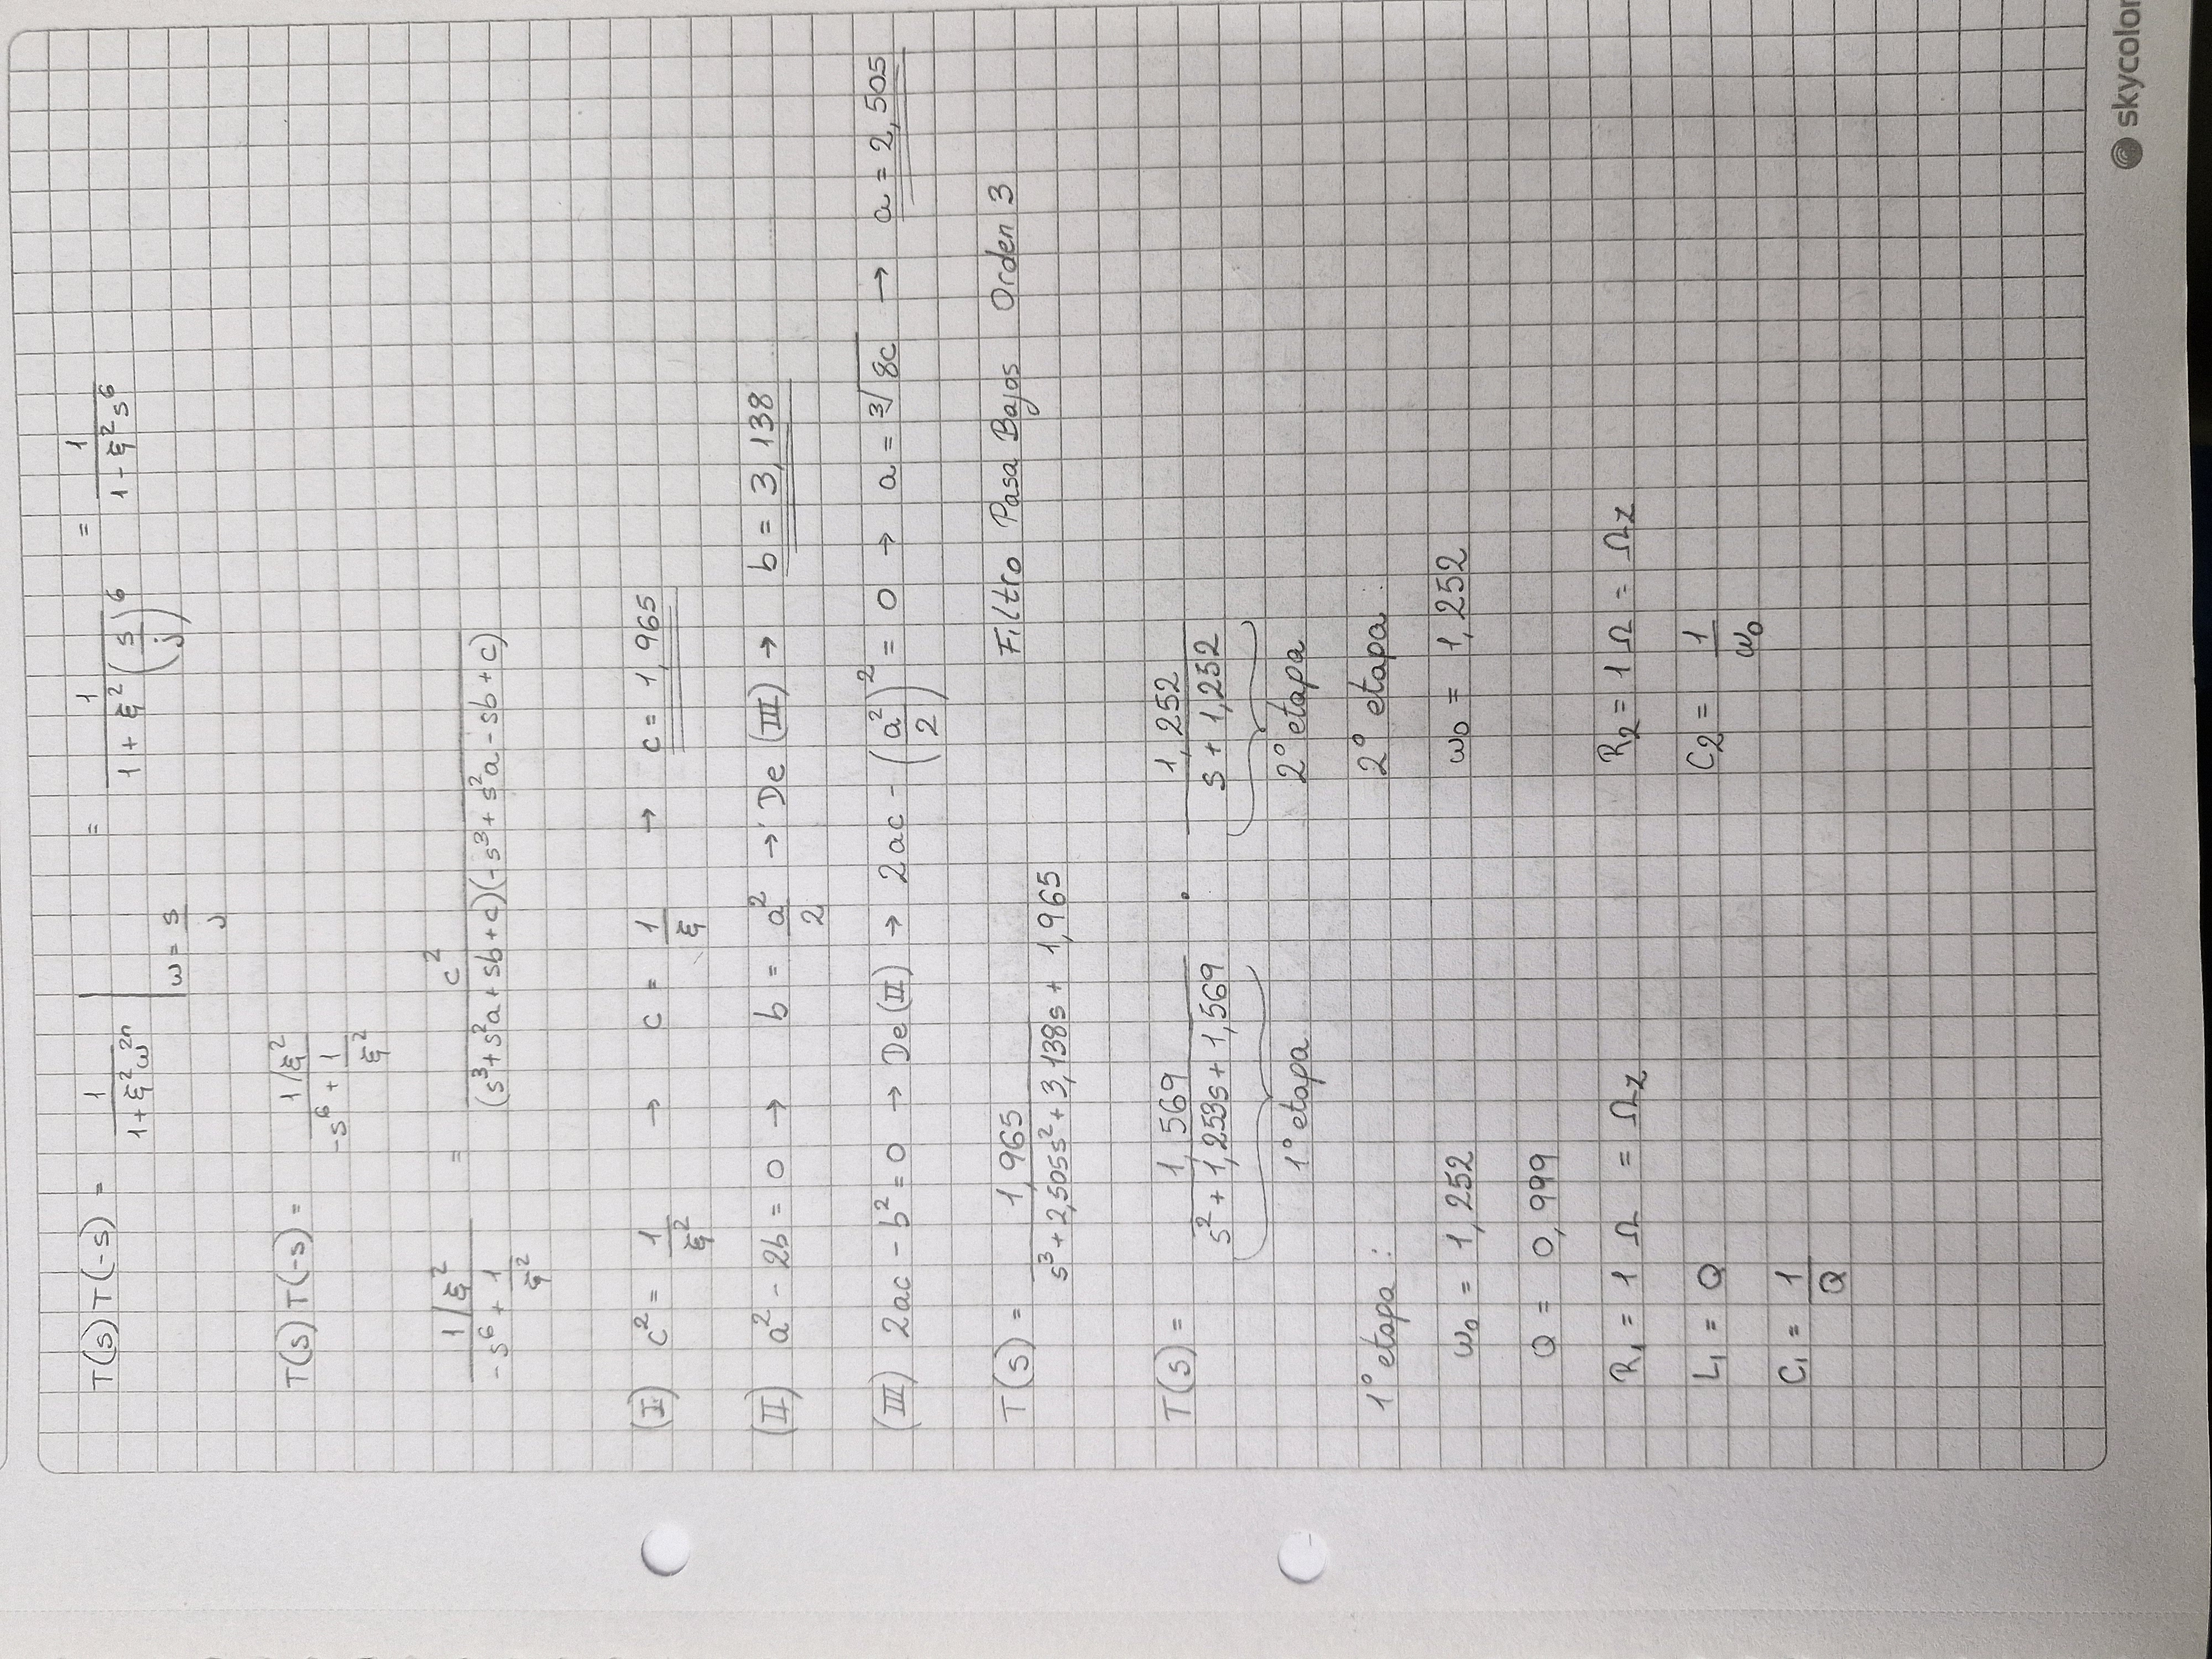 T(s) T(-s) = 1 / (1 + ξ² ω²ⁿ) | ω = s/j = 1 / (1 + ξ² (s/j)⁶) = 1 / (1 - ξ² s⁶)
T(s) T(-s) = (1/ξ²) / (-s⁶ + 1/ξ²)
(1/ξ²) / (-s⁶ + 1/ξ²) = c² / ((s³ + s²a + sb + c)(-s³ + s²a - sb + c))
(I) c² = 1/ξ² → c = 1/ξ → c = 1,965
(II) a² - 2b = 0 → b = a²/2 → De (III) → b = 3,138
(III) 2ac - b² = 0 → De (II) → 2ac - (a²/2)² = 0 → a = ³√8c → a = 2,505
T(s) = 1,965 / (s³ + 2,505s² + 3,138s + 1,965) Filtro Pasa Bajos Orden 3
T(s) = 1,569 / (s² + 1,253s + 1,569) . 1,252 / (s + 1,252)
1° etapa 2° etapa
1° etapa : 2° etapa :
ω₀ = 1,252 ω₀ = 1,252
Q = 0,999
R₁ = 1 Ω = Ωz R₂ = 1 Ω = Ωz
L₁ = Q C₂ = 1/ω₀
C₁ = 1/Q
skycolor